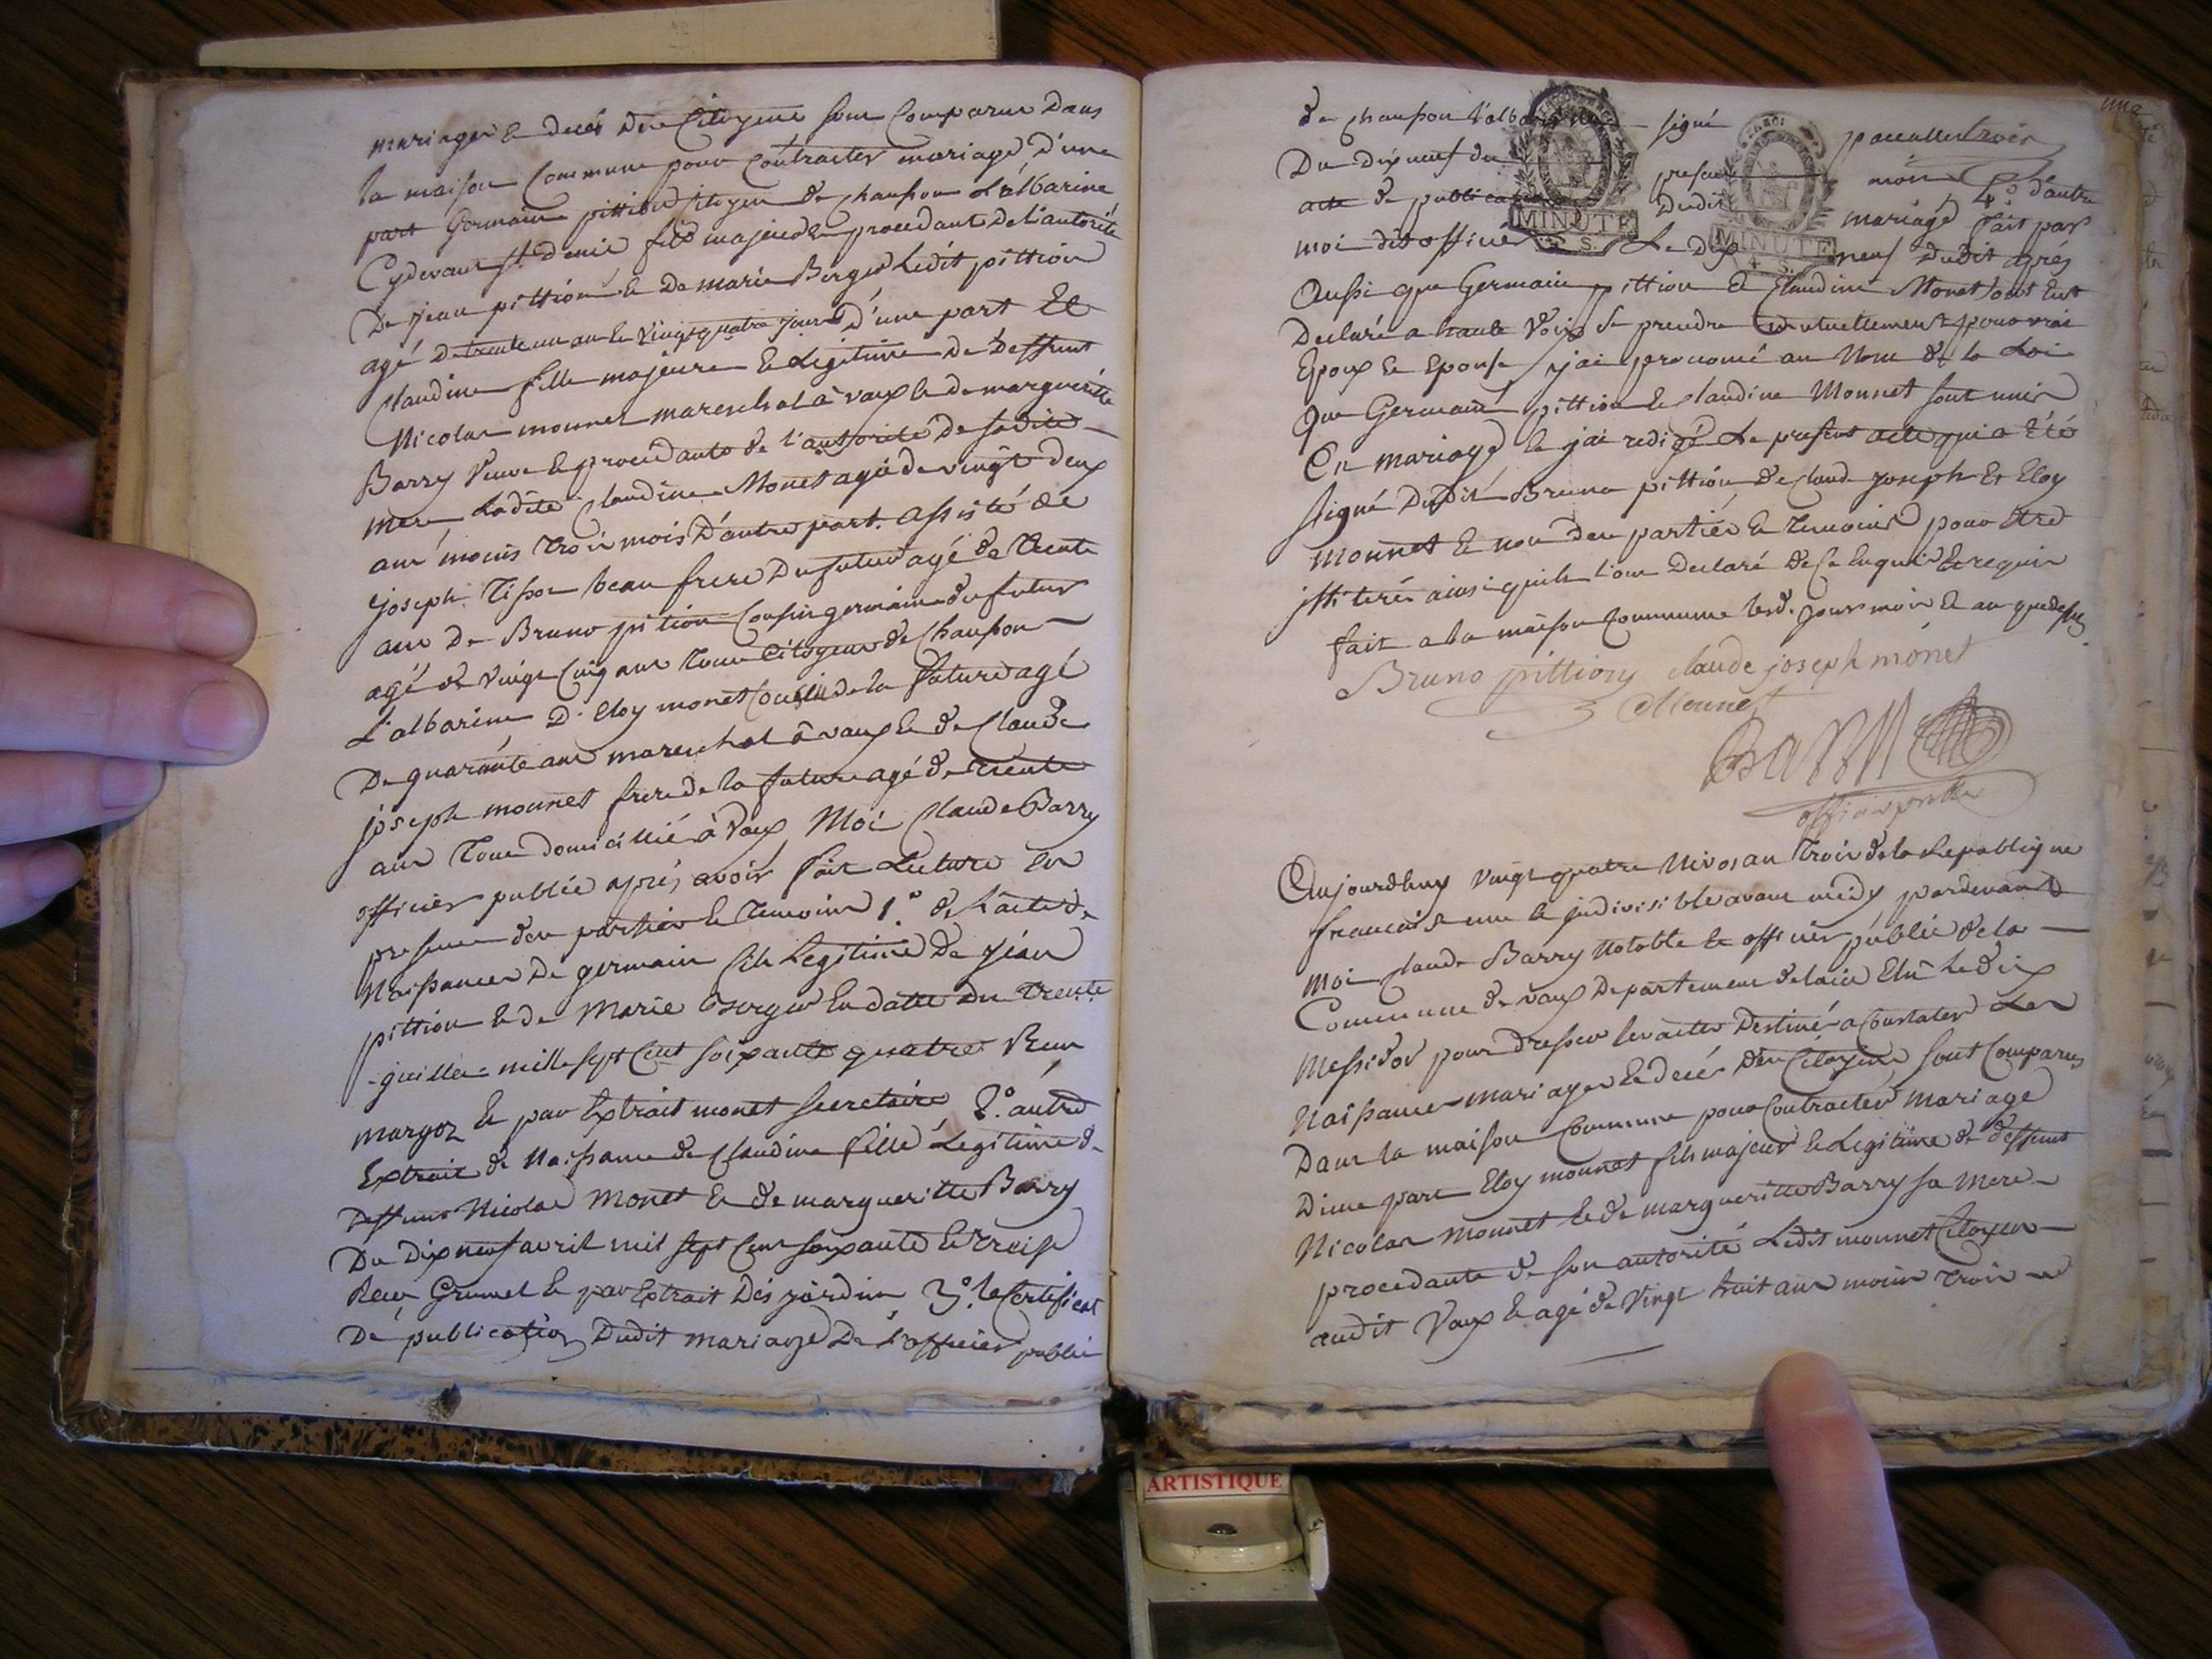 mariages et decés des Citoyens sont Comparus Dans
la maison Commune pour Contracter mariage D'une
part Germain pittion Citoyen de chausson L'albarine
Cydevant st. Denis fils majeur procedant de l'autorité
De jean pittion et De marie Berger Ledit pittion
agé De trente un an et vingt quatre jours D'une part Et
Claudine fille majeure et Legitime de Deffunt
Nicolas monnet mareschal à vaux et de margueritte
Barry veuve et procedante de l'autorité De sadite
mere Ladite Claudine Monet agée de vingt deux
ans moins trois mois D'autre part. Assisté de
joseph Tissot beau frere Du futur agé de trente
ans De Bruno pition Cousin germain du futur
agé de vingt Cinq ans tous Citoyens de Chausson
L'albarine D. Eloy monet Cousin de la future agé
De quarante ans mareschal à vaux et de Claude
joseph monnet frere de la future agé de trente
ans tous domicillié à vaux, Moi Claude Barry
officier public aprés avoir fait Lecture En
presence des parties et temoins 1.° de L'acte de
Naissance De germain fils Legitime De jean
pittion et de Marie Berger En datte du trente
juillet mille sept Cent soixante quatre Reçu
margoz et par Extrait monet secretaire, 2.° autre
Extrait de Naissance de Claudine fille Legitime de
Deffunt Nicolas Monet et de margueritte Barry
Du dix neuf avril mil sept Cent soixante et treise
Reçu Grumet et par Extrait Des jardin, 3.° le Certificat
De publication Dudit mariage De L'officier public
de chausson L'albarine signé
Du dix neuf du present mois
4.° d'autre
acte de publication Dudit mariage fait par
moi dit officier Le Dix neuf Dudit aprés
Aussi que Germain pittion et Claudine Monet ont Eut
Declaré a haute voix se prendre mutuellement pour vrai
Epoux et Epouse j'ai prononcé au Nom de la Loi
que Germain pittion et Claudine Monnet sont unis
En mariage et j'ai redigé Le present acte qui a Eté
signé Dudit Bruno pittion de Claude joseph Et Eloy
monnet et non des parties et temoins pour Etre
illiterés ainsi quils l'ont Declaré de ce Enquis et requis
fait a la maison Commune lesd. jours mois et an que dessus
Bruno pittiony claude joseph mónet
EMonnet
Barry
officier public
Aujourdhuy vingt quatre Nivos an Trois de la Republique
francaise une et jndivisible avant midy pardevant
moi Claude Barry Notable et officier public de la
Commune de vaux Departement de lain Elu Le dix
Messidor pour Dresser les actes Destinés a Constater Les
Naissances mariages et decés Des Citoyens sont Comparus
Dans la maison Commune pour Contracter Mariage
D'une part Eloy monnet fils majeur et Legitime de deffunt
Nicolas Monnet et de margueritte Barry sa mere
procedante de son autorité Ledit monnet Citoyen
audit Vaux et agé de vingt huit ans moins trois
MINUTE
4. S.
MINUTE
4. S.
ARTISTIQUE